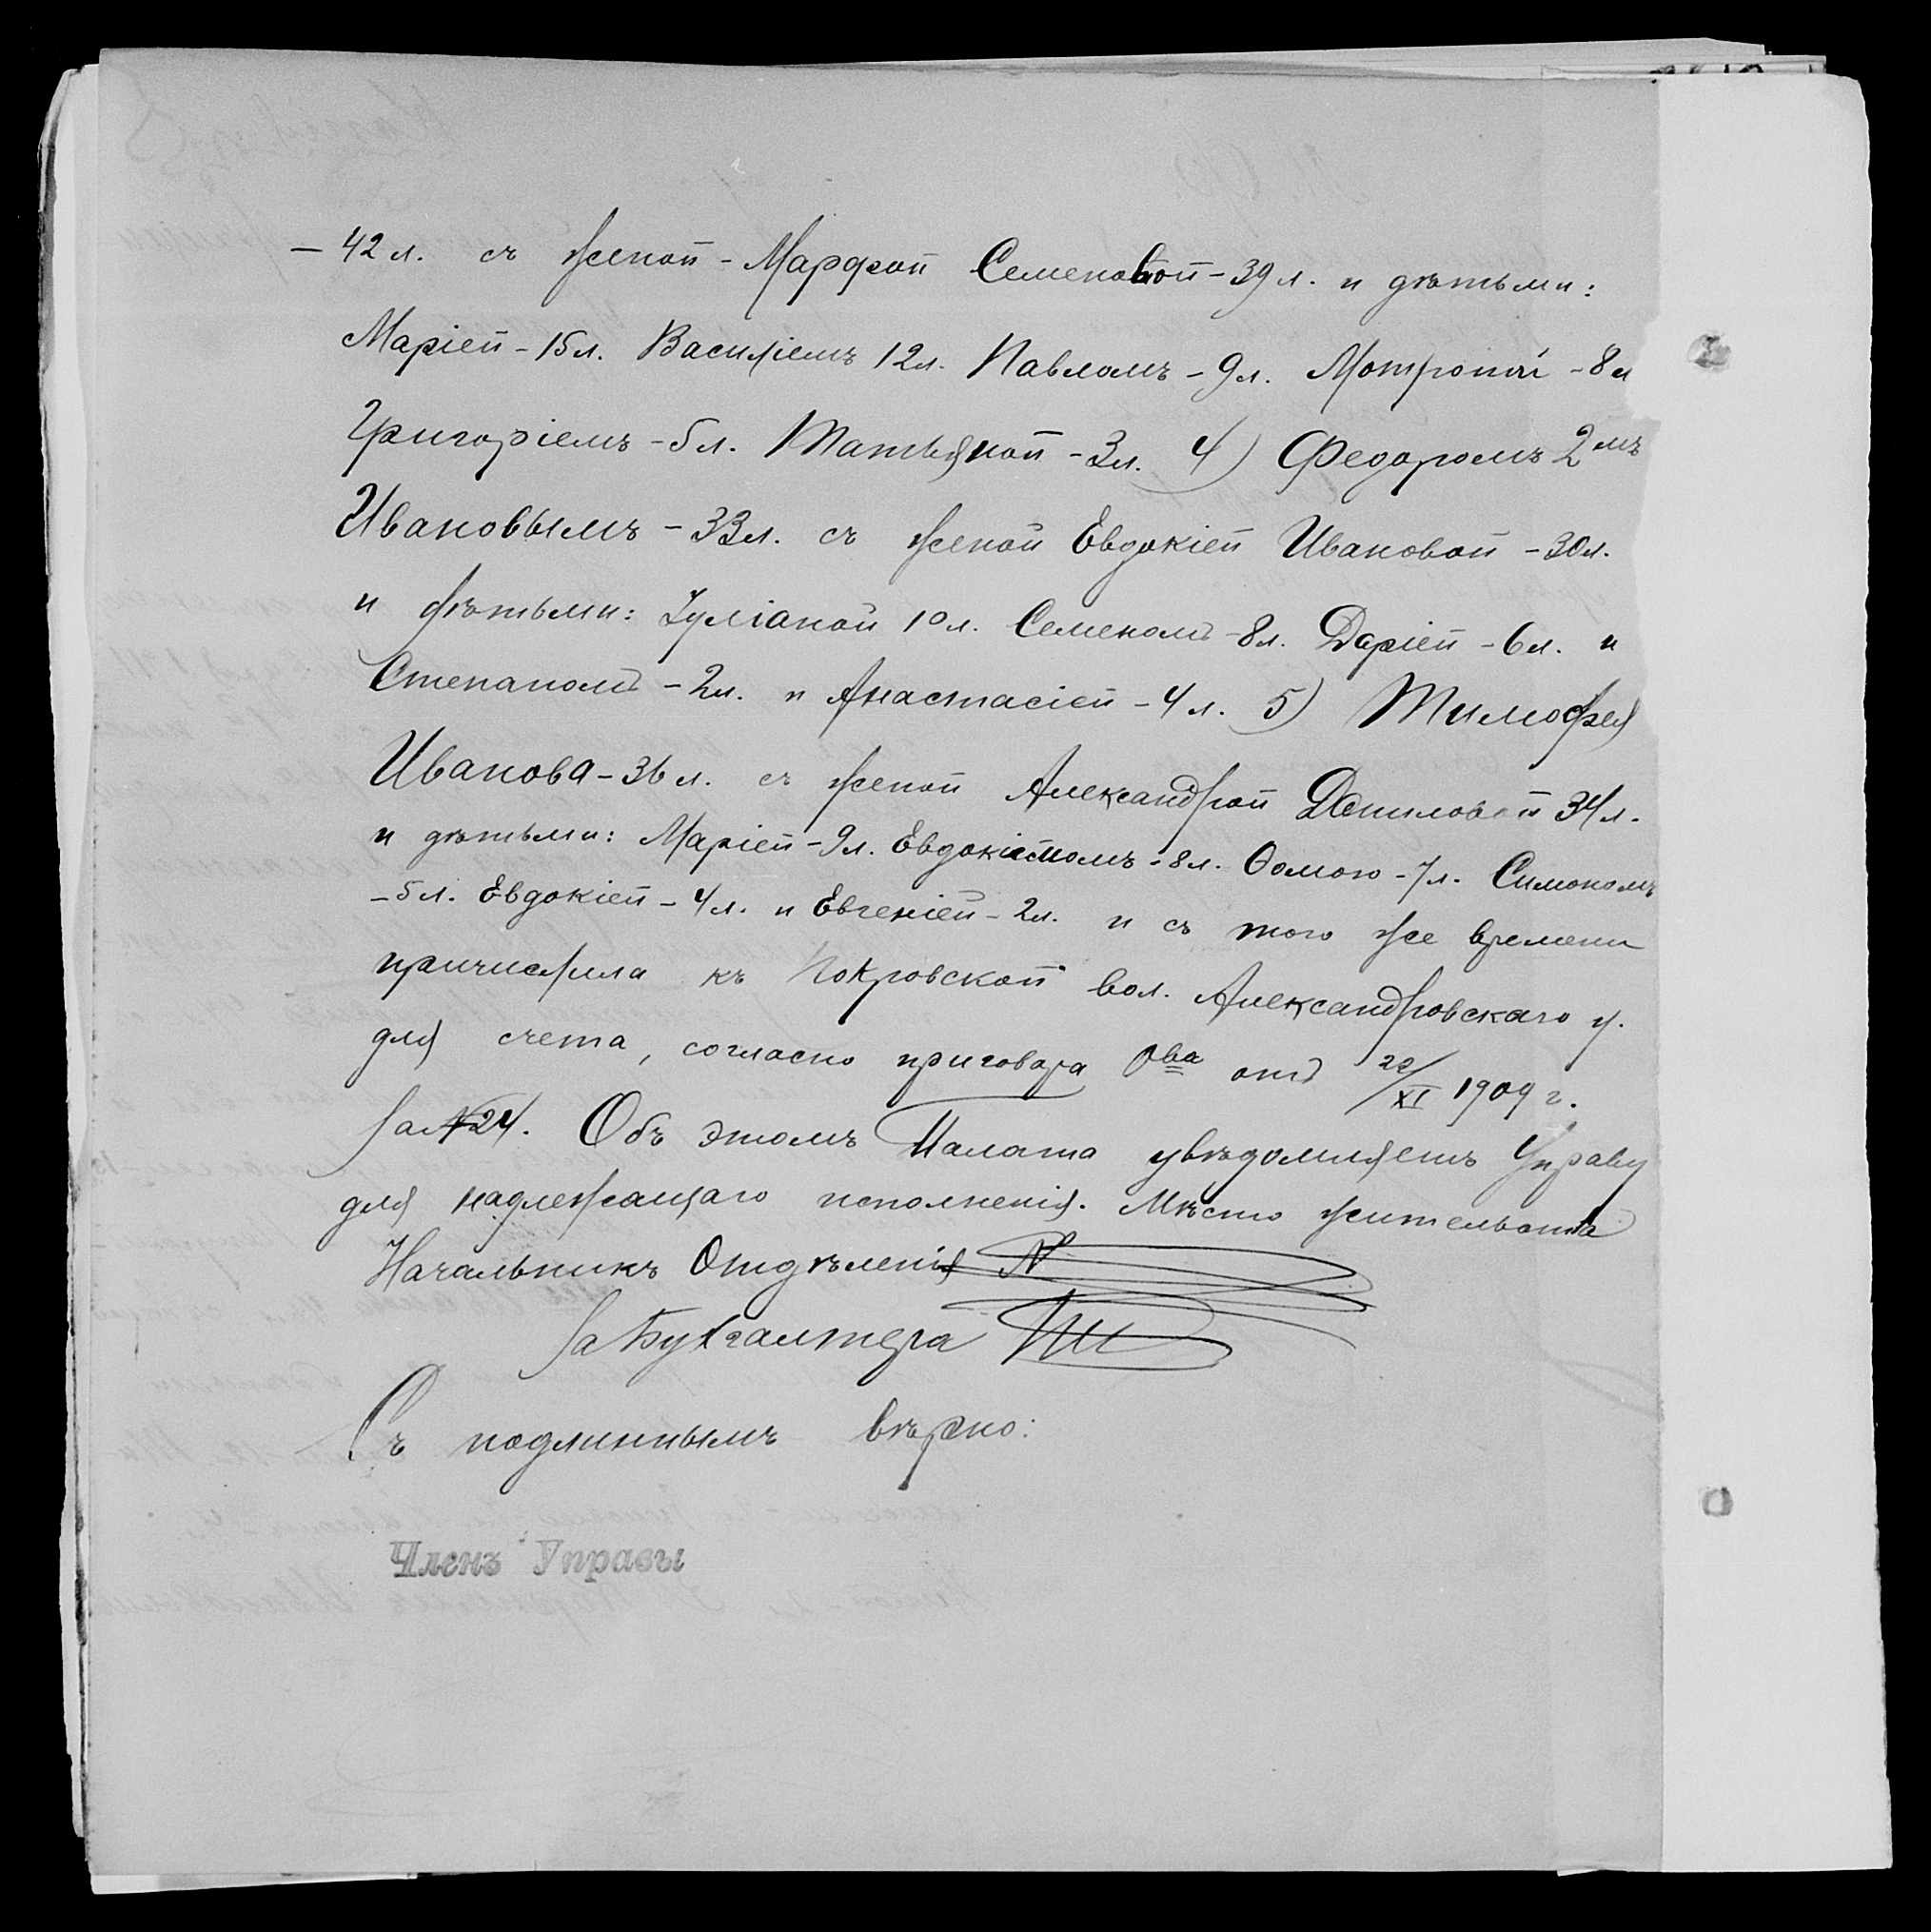 — 42 л. съ женой - Марфой Семеновой - 39 л. и дѣтьми:
Маріей - 15 л. Василіемъ 12 л. Павломъ - 9 л. Мотроной - 8 л
Григоріемъ - 5 л. Татьяной - 3 л. 4) Федоромъ 2мъ
Ивановымъ - 33 л. съ женой Евдокіей Ивановой - 30 л.
и дѣтьми: Іуліаной 10 л. Семеномъ - 8 л. Даріей - 6 л. и
Степаномъ - 2 л. и Анастасіей - 4 л. 5) Тимофея
Иванова - 36 л. съ женой Александрой Даниловой 34 л.
и дѣтьми: Маріей - 9 л. - 8 л. Ѳомою - 7 л. Симономъ
- 5 л. Евдокіей - 4 л. и Евгеніей - 2 л. и съ того же времени
причислила къ Покровской вол. Александровскаго у.
для счета, согласно приговора О-ва отъ 22/XI 1909 г.
за № 24. Объ этомъ Палата увѣдомляетъ Управу
для надлежащаго исполненія. Мѣсто жительства
Начальникъ Отдѣленія
за Бухгалтера
Съ подлиннымъ вѣрно:
Членъ Управы